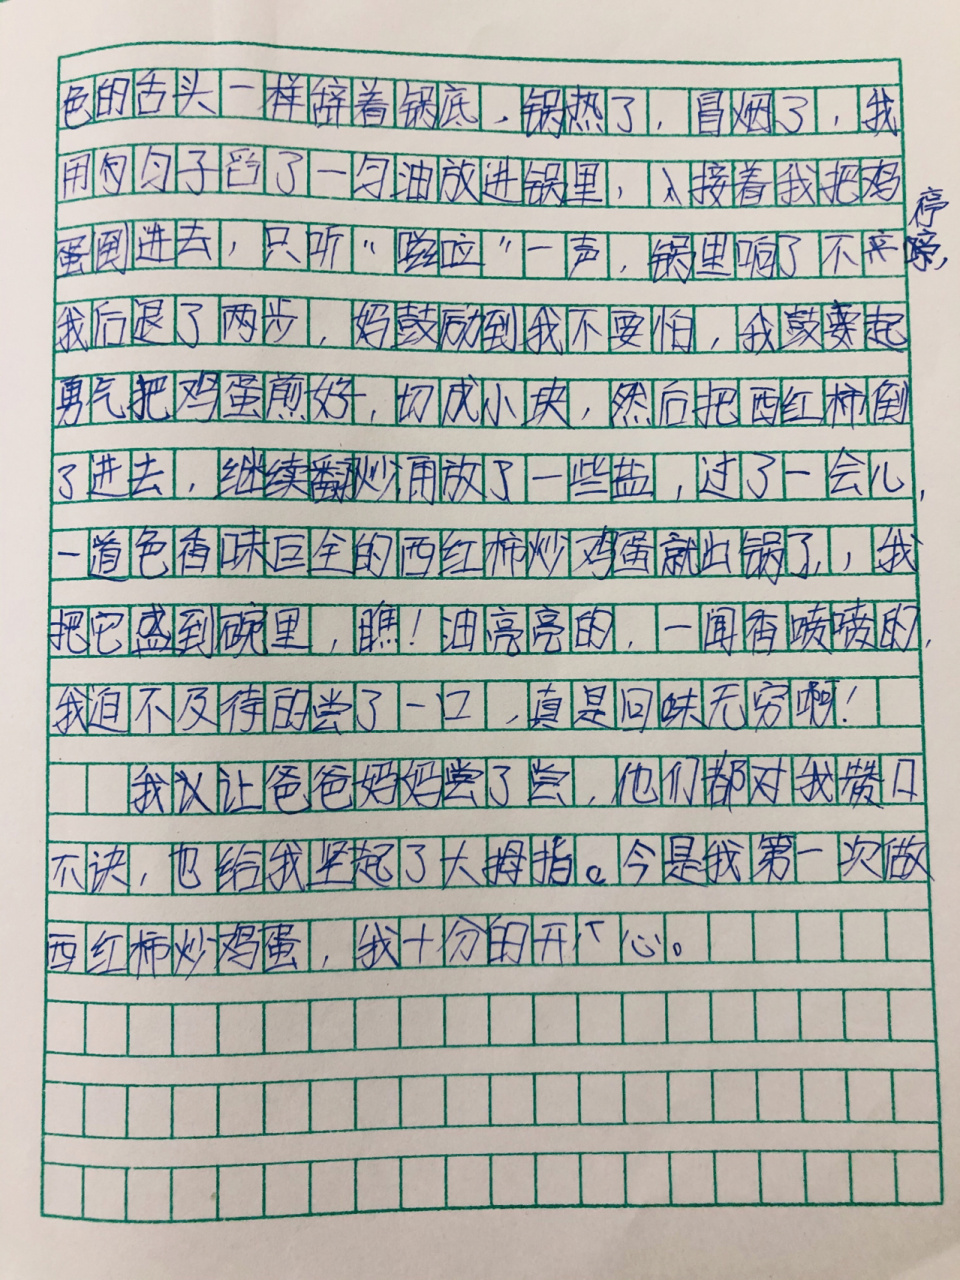 色的舌头一样舔着锅底，锅热了，冒烟了，我
用勺子舀了一勺油放进锅里，接着我把鸡
蛋倒进去，只听“嗞啦”一声，锅里响了不停，
我后退了两步，妈鼓励到我不要怕，我鼓起
勇气把鸡蛋煎好，切成小块，然后把西红柿倒
了进去，继续翻炒再放了一些盐，过了一会儿，
一道色香味巨全的西红柿炒鸡蛋就出锅了，我
把它盛到碗里，瞧！油亮亮的，一闻香喷喷的，
我迫不及待的尝了一口，真是回味无穷啊！
我让爸爸妈妈尝了尝，他们都对我赞口
不诀，也给我坚起了大拇指。今是我第一次做
西红柿炒鸡蛋，我十分的开心。